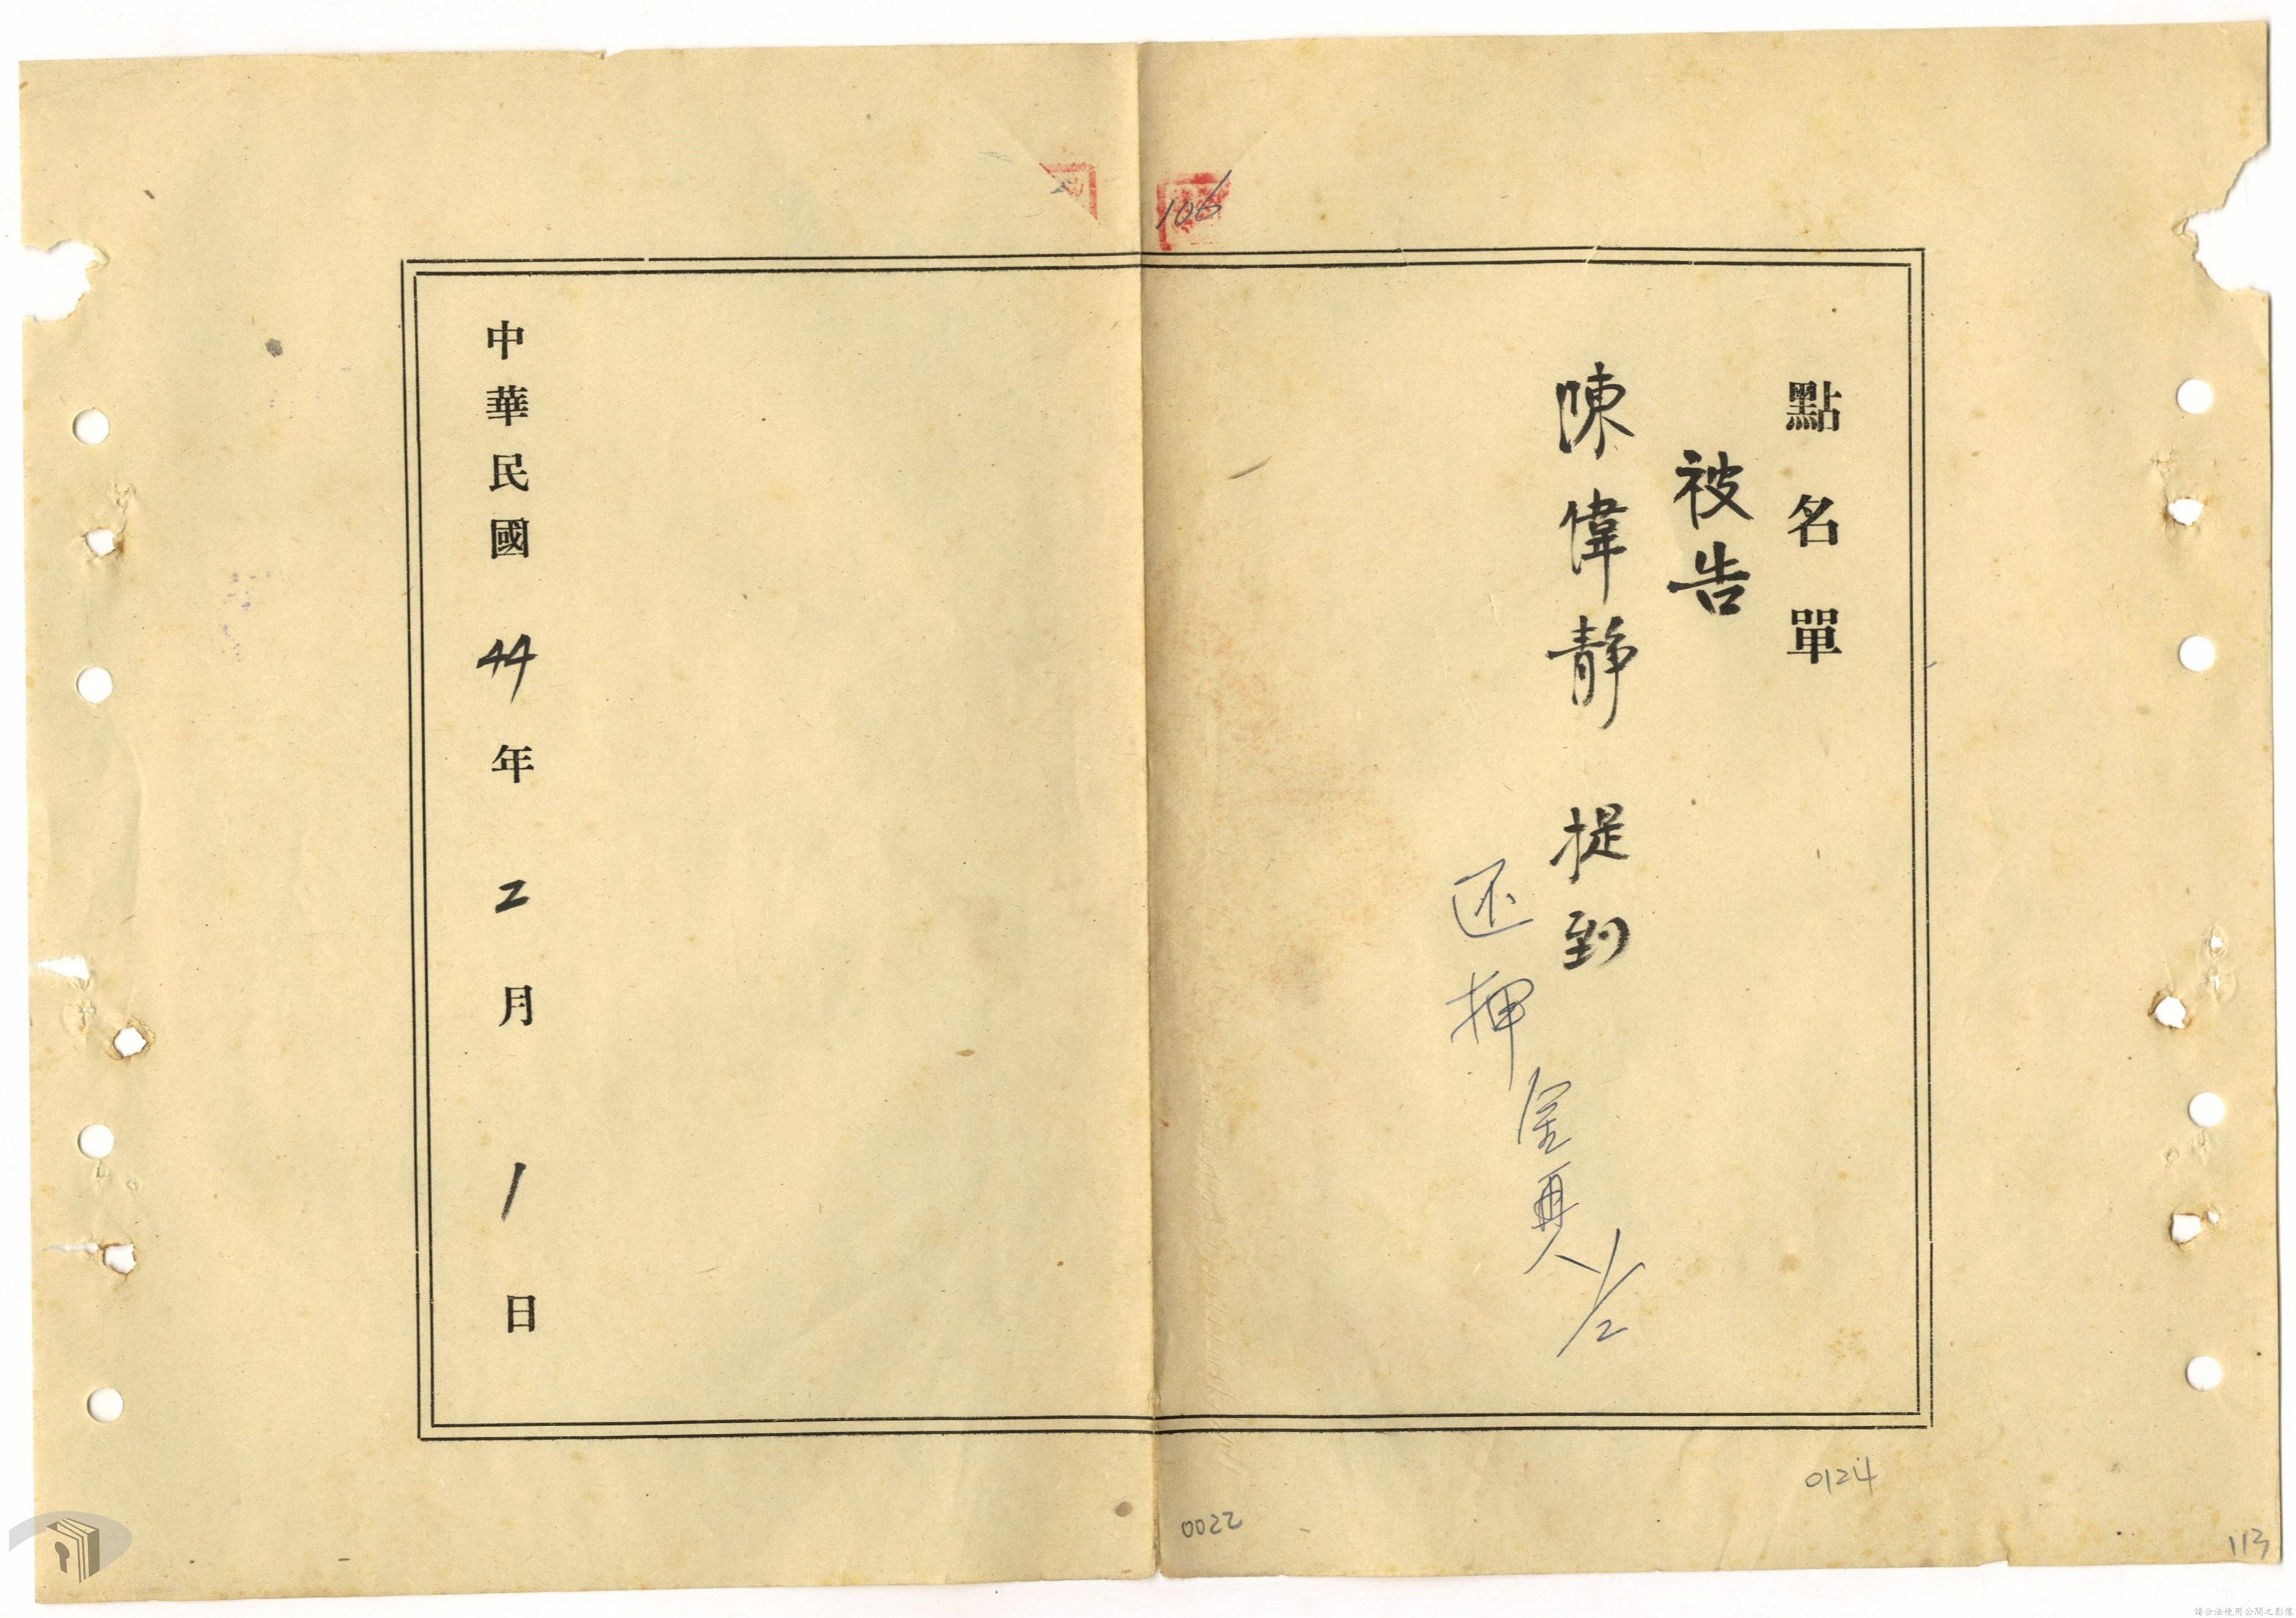 點名單
被告
陳偉靜 提到
还押
1/2
中華民國44年2月1日
106
0022
0124
113
請合法使用公開之影像